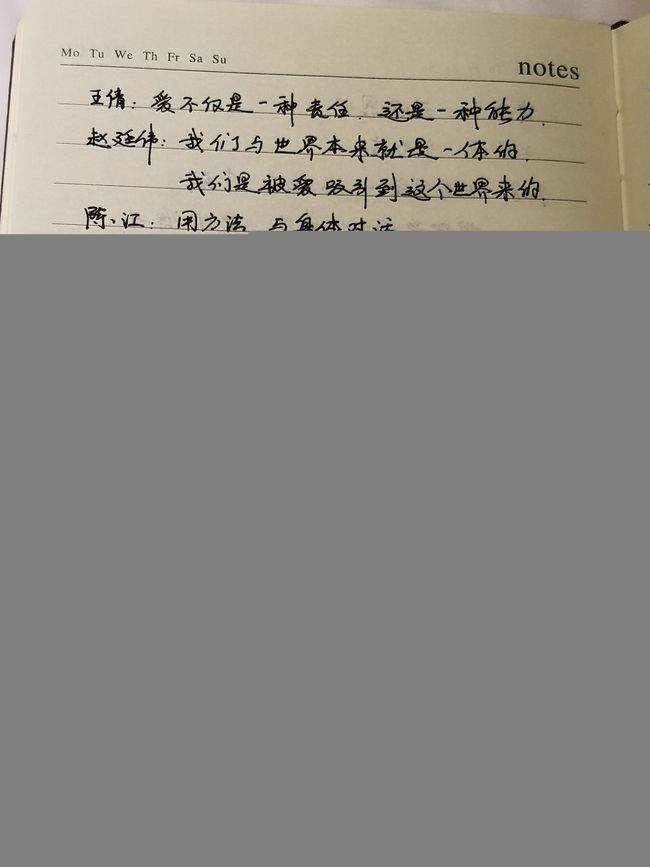 Mo Tu We Th Fr Sa Su
notes
王倩：爱不仅是一种责任．还是一种能力．
赵廷伟：我们与世界本来就是一体的．
我们是被爱吸引到这个世界来的．
陈江：用方法 与身体对话